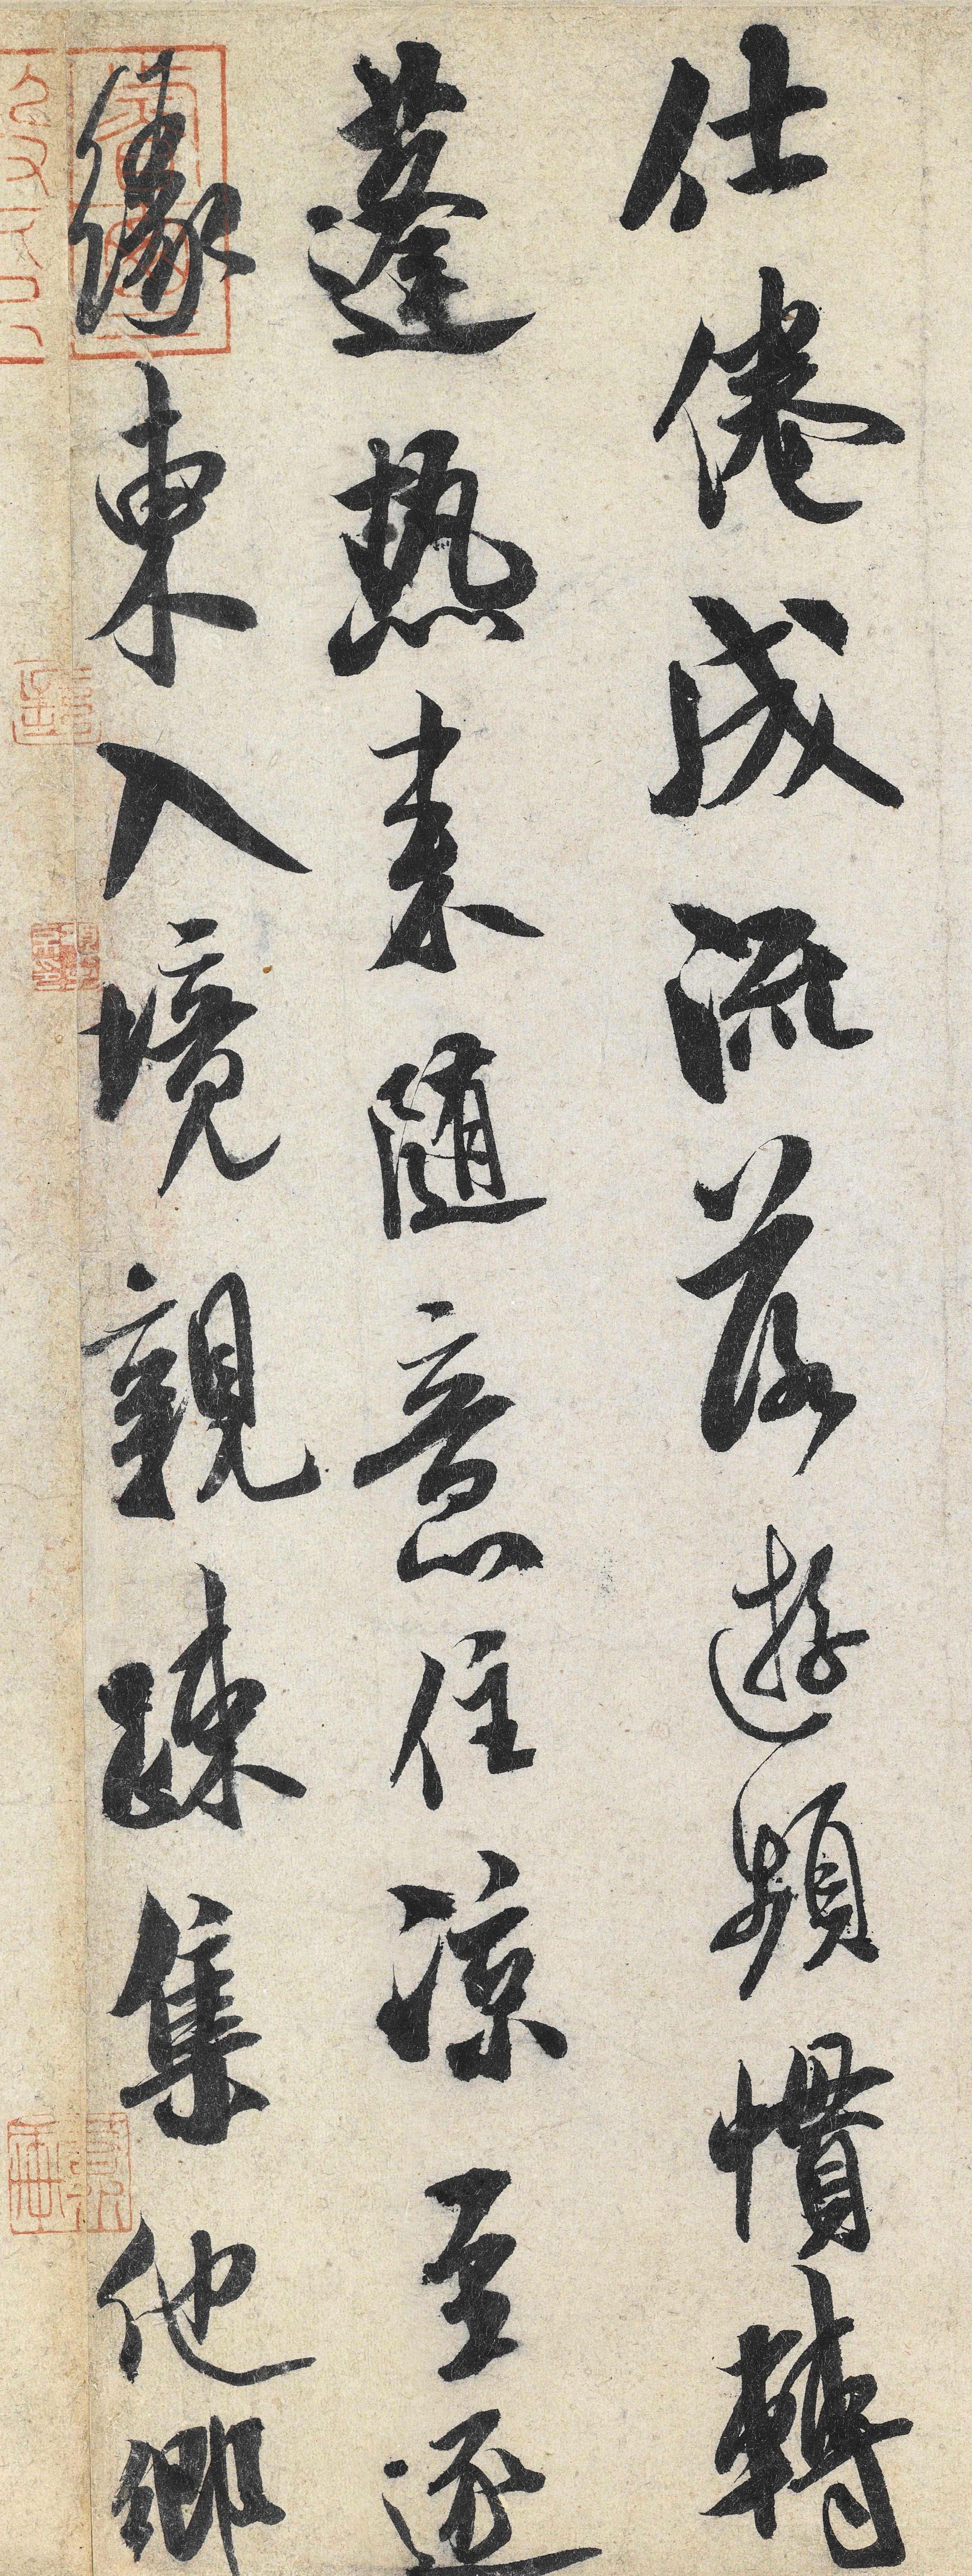 仕倦成流落遊頻慣轉
蓬熱来随意住涼至逐
緣東入境親疎集他鄉